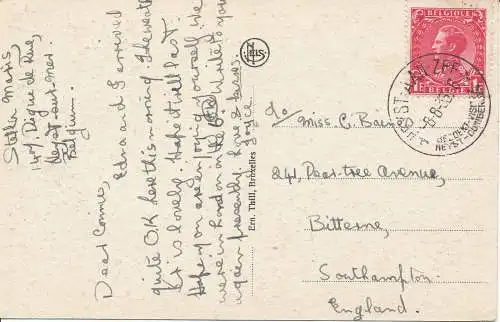 Stella Maris,
147 Digue de Mer,
Heyst-sur-mer
Belgium.
Dear Connie,
Edna and I arrived
quite O.K. here this morning. The weather
is lovely. Hope it will last.
Hope you are enjoying yourself. We
were in London in the Write to you
again presently. Love
Joyce
Ern. Thill, Bruxelles
BELGIQUE
BELGIE
HEYST
c/o Miss C. Baines
241, Pear-tree Avenue,
Bitterne,
Southampton
England.